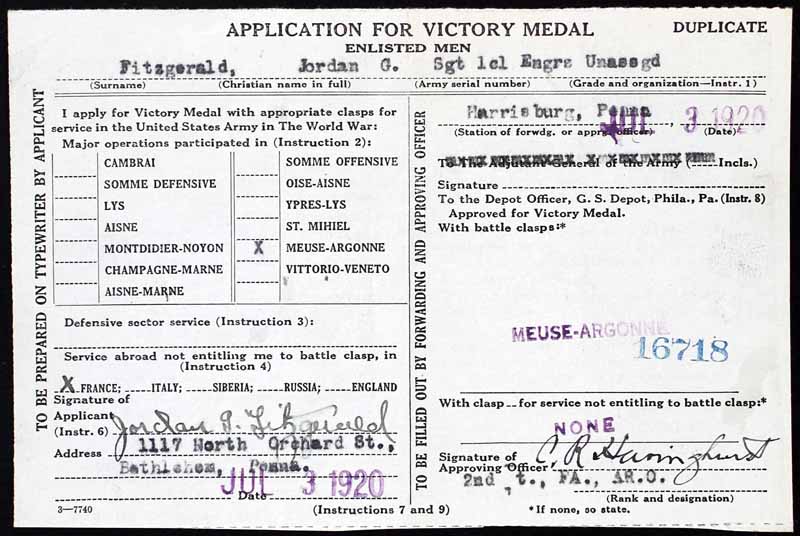 APPLICATION FOR VICTORY MEDAL
DUPLICATE
ENLISTED MEN
Fitzgerald, Jordan G. Sgt 1cl Engrs Unassgd
(Surname) (Christian name in full) (Army serial number) (Grade and organization—Instr. 1)
TO BE PREPARED ON TYPEWRITER BY APPLICANT
I apply for Victory Medal with appropriate clasps for
service in the United States Army in The World War:
Major operations participated in (Instruction 2):
CAMBRAI
SOMME DEFENSIVE
LYS
AISNE
MONTDIDIER-NOYON
CHAMPAGNE-MARNE
AISNE-MARNE
SOMME OFFENSIVE
OISE-AISNE
YPRES-LYS
ST. MIHIEL
X MEUSE-ARGONNE
VITTORIO-VENETO
Defensive sector service (Instruction 3):
Service abroad not entitling me to battle clasp, in
(Instruction 4)
X FRANCE; ITALY; SIBERIA; RUSSIA; ENGLAND
Signature of
Applicant
(Instr. 6) Jordan G. Fitzgerald
Address 1117 North Orchard St.,
Bethlehem, Penna.
JUL 3 1920
Date
3—7740
(Instructions 7 and 9)
TO BE FILLED OUT BY FORWARDING AND APPROVING OFFICER
Harrisburg, Penna JUL 3 1920
(Station of forwdg. or apprg officer) (Date)
To The Adjutant General of the Army ( Incls.)
Signature
To the Depot Officer, G. S. Depot, Phila., Pa. (Instr. 8)
Approved for Victory Medal.
With battle clasps:*
MEUSE-ARGONNE
16718
With clasp for service not entitling to battle clasp:*
NONE
Signature of
Approving Officer C. R.
2nd t., FA., AR.O.
(Rank and designation)
*If none, so state.